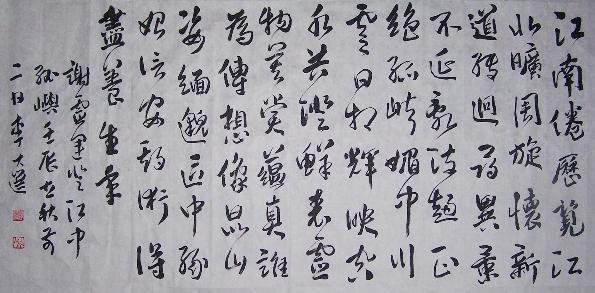 江南倦歷覽江
北曠周旋懷新
道轉迴尋異景
不延亂流趨正
絕孤嶼媚中川
雲日相輝映空
水共澄鮮表靈
物莫賞蘊真誰
為傳想像昆山
姿緬邈區中緣
始信安期術得
盡養生年
謝靈運登江中
孤嶼壬辰立秋前
二日李大